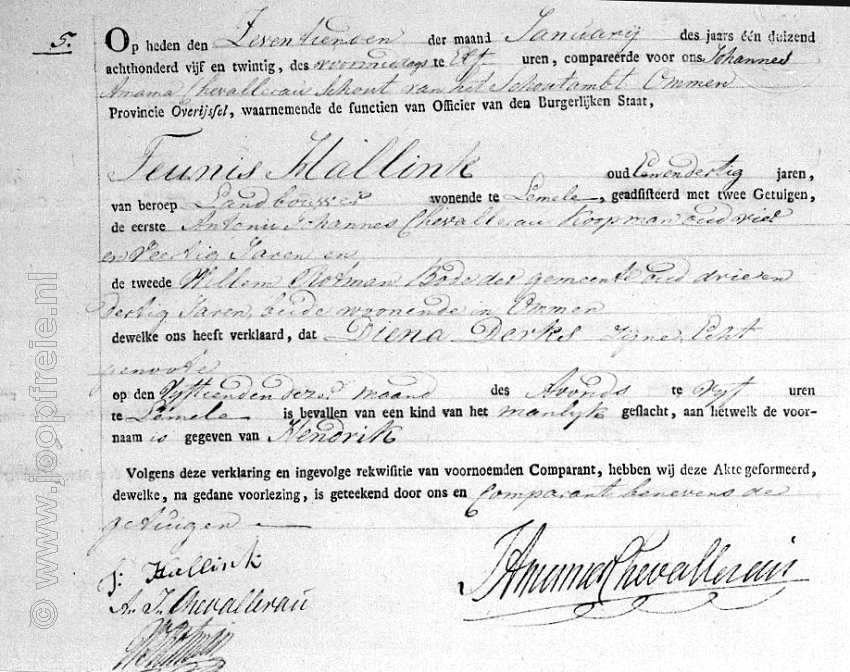 5.
Op heden den Zeventienden der maand Januarij des jaars één duizend
achthonderd vijf en twintig, des voormiddags te Elf uren, compareerde voor ons Johannes
Amama Chevallerau Schout van het Schoutambt Ommen
Provincie Overijssel, waarnemende de functien van Officier van den Burgerlijken Staat,
Teunis Hallink oud Eenendertig jaren,
van beroep Landbouwer wonende te Lemele, geadsisteerd met twee Getuigen,
de eerste Antonie Johannes Chevallerau Koopman oud vier
en Veertig Jaren en
de tweede Willem Bode der gemeente oud drie en
Dertig Jaren, beide woonende in Ommen
dewelke ons heeft verklaard, dat Diena Derks zijne Echt
genoote
op den Vijftienden dezer maand des Avonds te Vijf uren
te Lemele is bevallen van een kind van het manlijk geslacht, aan hetwelk de voor-
naam is gegeven van Hendrik
Volgens deze verklaring en ingevolge rekwisitie van voornoemden Comparant, hebben wij deze Akte geformeerd,
dewelke, na gedane voorlezing, is geteekend door ons en Comparant benevens de
getuigen
T: Hallink
An Js Chevallerau
JAmama Chevallerau
© www.joopfreie.nl